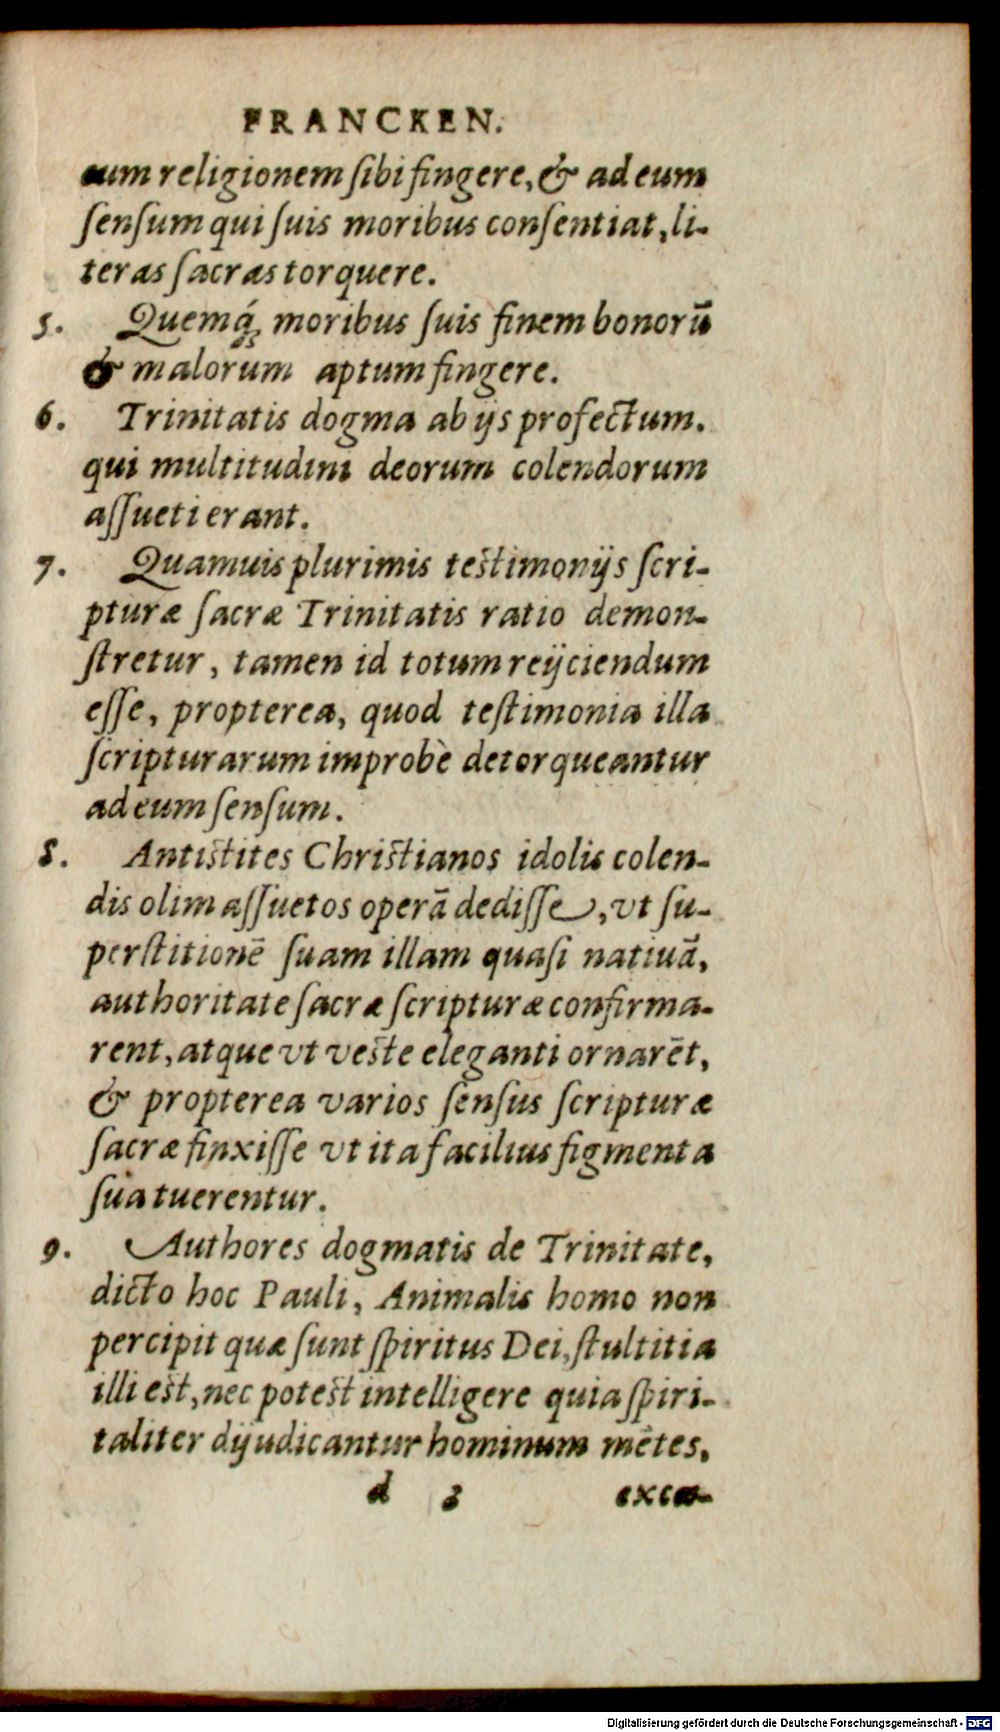 FRANCKEN.
eum religionem ſibi fingere, & ad eum
ſenſum qui ſuis moribus conſentiat, li-
teras ſacras torquere.
5. Quemq́ꝫ moribus ſuis finem bonorū
& malorum aptum fingere.
6. Trinitatis dogma ab ijs profectum.
qui multitudini deorum colendorum
aſſueti erant.
7. Quamuis plurimis testimonijs ſcri-
pturæ ſacræ Trinitatis ratio demon-
ſtretur, tamen id totum reijciendum
eſſe, propterea, quod teſtimonia illa
ſcripturarum improbè detorqueantur
ad eum ſenſum.
8. Antistites Christianos idolis colen-
dis olim aſſuetos operā dediſſe, vt ſu-
perſtitionē ſuam illam quaſi natiuā,
authoritate ſacræ ſcripturæ confirma-
rent, atque vt veste eleganti ornarēt,
& propterea varios ſenſus ſcripturæ
ſacræ finxiſſe vt ita facilius figmenta
ſua tuerentur.
9. Authores dogmatis de Trinitate,
dicto hoc Pauli, Animalis homo non
percipit quæ ſunt ſpiritus Dei, ſtultitia
illi est, nec potest intelligere quia ſpiri-
taliter dijudicantur hominum mētes,
d 3 excæ-
Digitalisierung gefördert durch die Deutsche Forschungsgemeinschaft - DFG